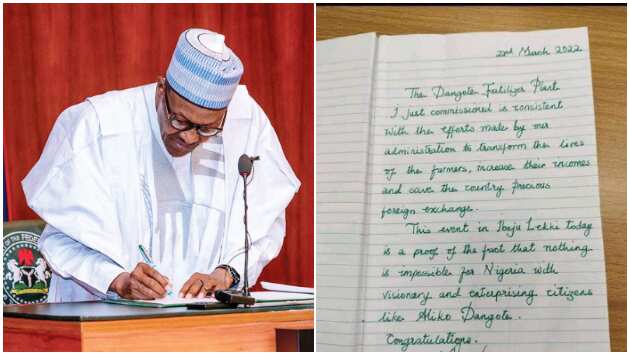 22nd March 2022
The Dangote Fertilizer Plant
I just commissioned is consistent
With the efforts made by our
administration to transform the lives
of the farmers, increase their incomes
and save the country precious
foreign exchange.
This event in Ibeju Lekki today
is a proof of the fact that nothing
is impossible for Nigeria with
visionary and enterprising citizens
like Aliko Dangote.
Congratulations.
OF THE